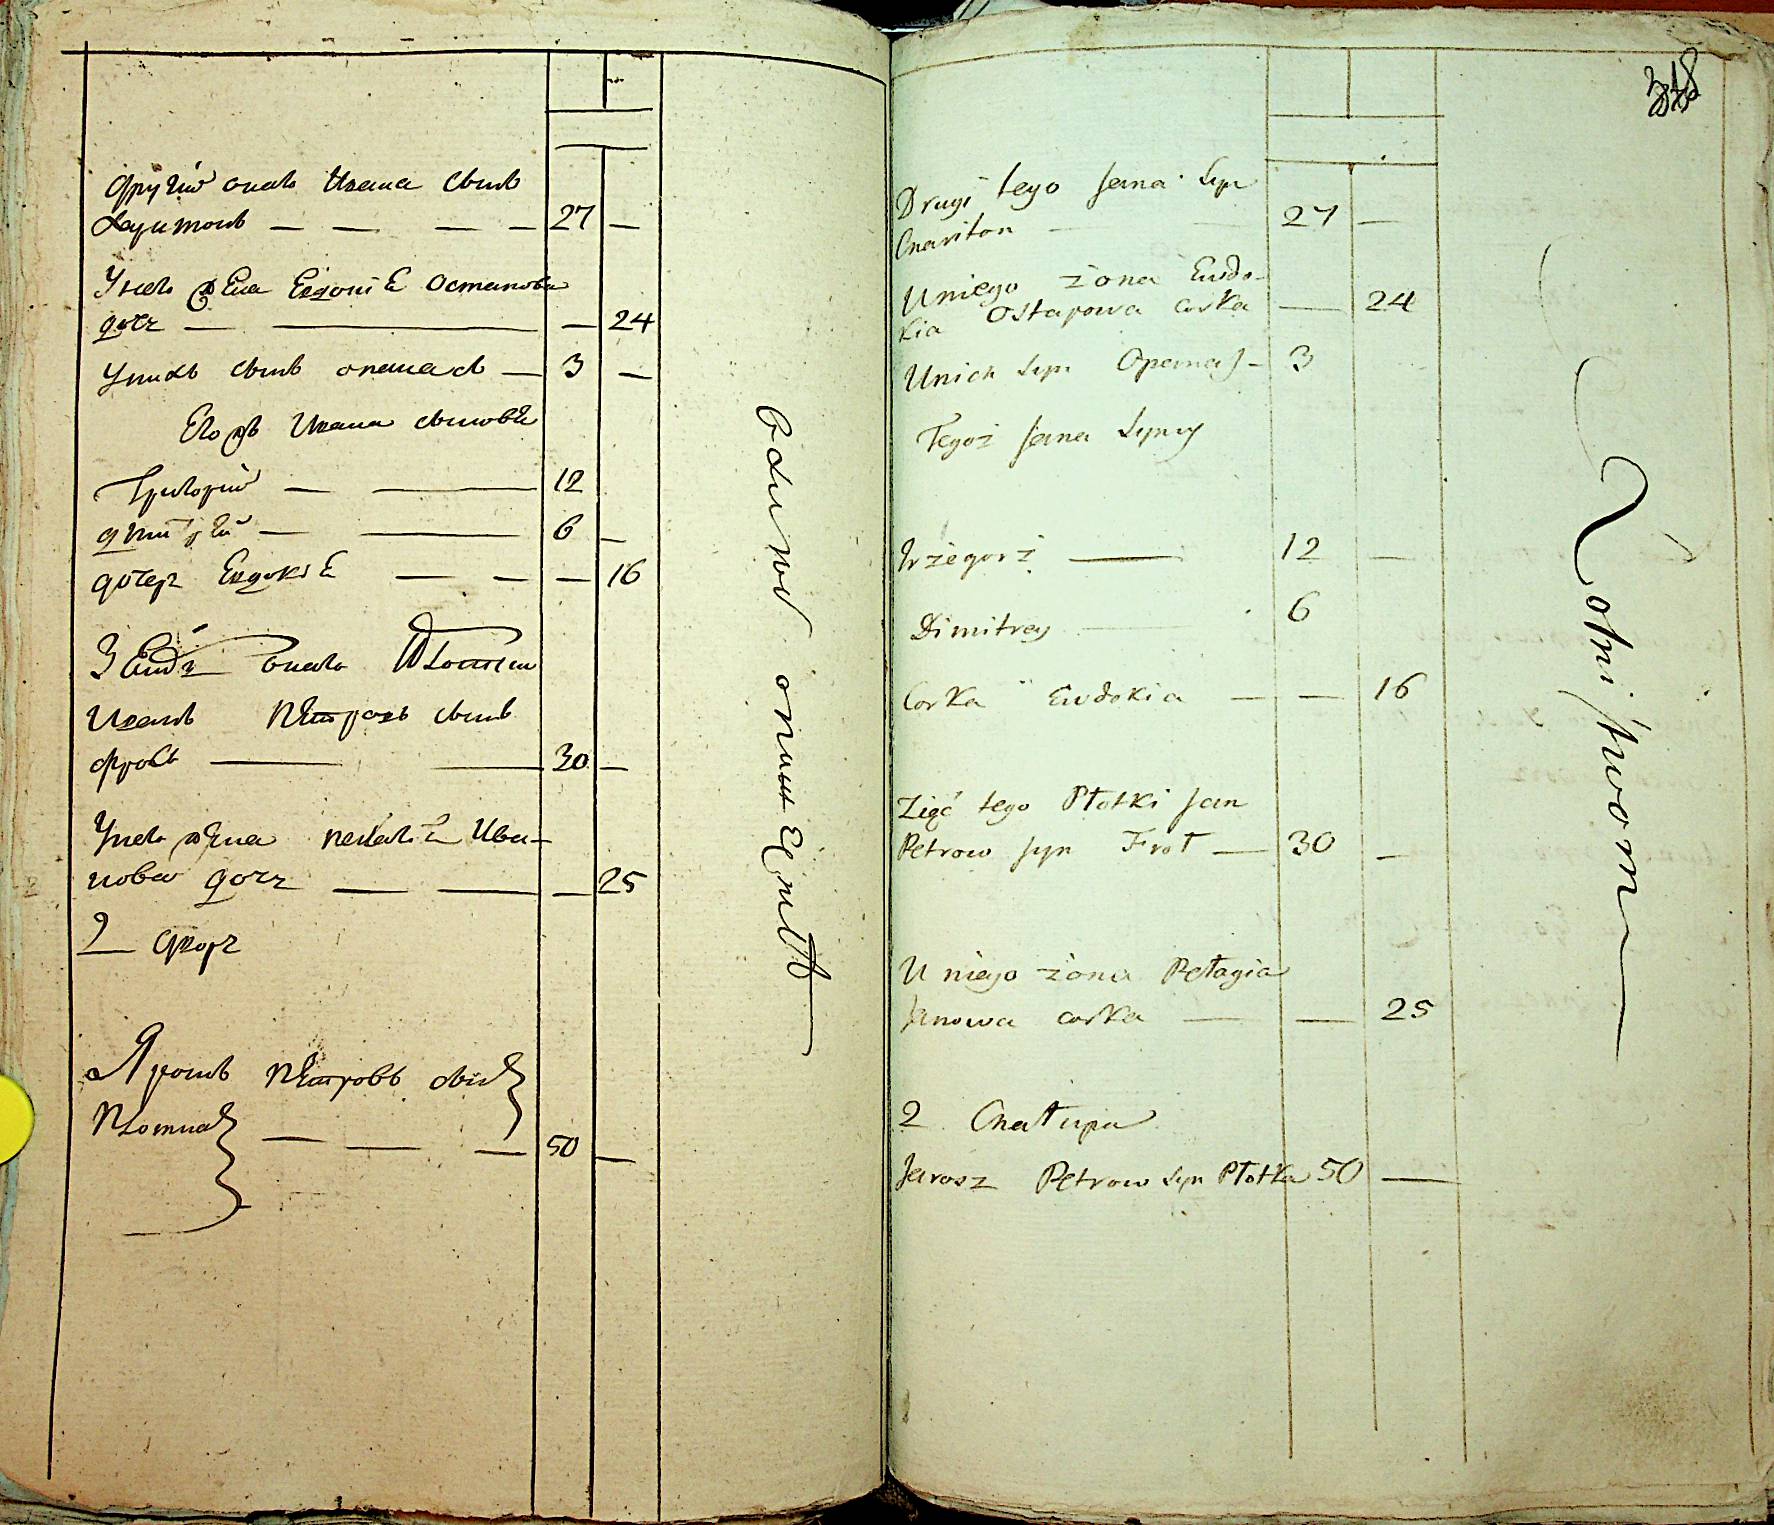 Другий онаго Ивана сынъ
Харитонъ — — — — 27 —
У него жена Евдокіе Остапова
дочь — — — 24
У нихъ сынъ Опанасъ — 3 —
Его жъ Ивана сыновѣ
Григорий — — 12
Дмитрей — — 6 —
дочерь Евдокіе — — — 16
Зять онаго Плотки
Иванъ Петровъ сынъ
Фролъ — — 30 —
У него жена Пелагія Ива-
нова дочь — — — 25
2 дворъ
Ярошъ Петровъ сынъ
Плотка — — — 50 —
318
Drugi tego Jana Syn
Chariton — — 27 —
U niego żona Eudo-
kia Ostapowa Corka — 24
U nich Syn Opanas — 3
Tegoż Jana Syny
Grzegorz — 12 —
Dimitrey — 6
Corka Eudokia — — 16
Zięć tego Płotki Jan
Petrow Syn Froł — 30 —
U niego żona Pełagia
Janowa corka — — 25
2 Chałupa
Jarosz Petrow Syn Płotka 50 —